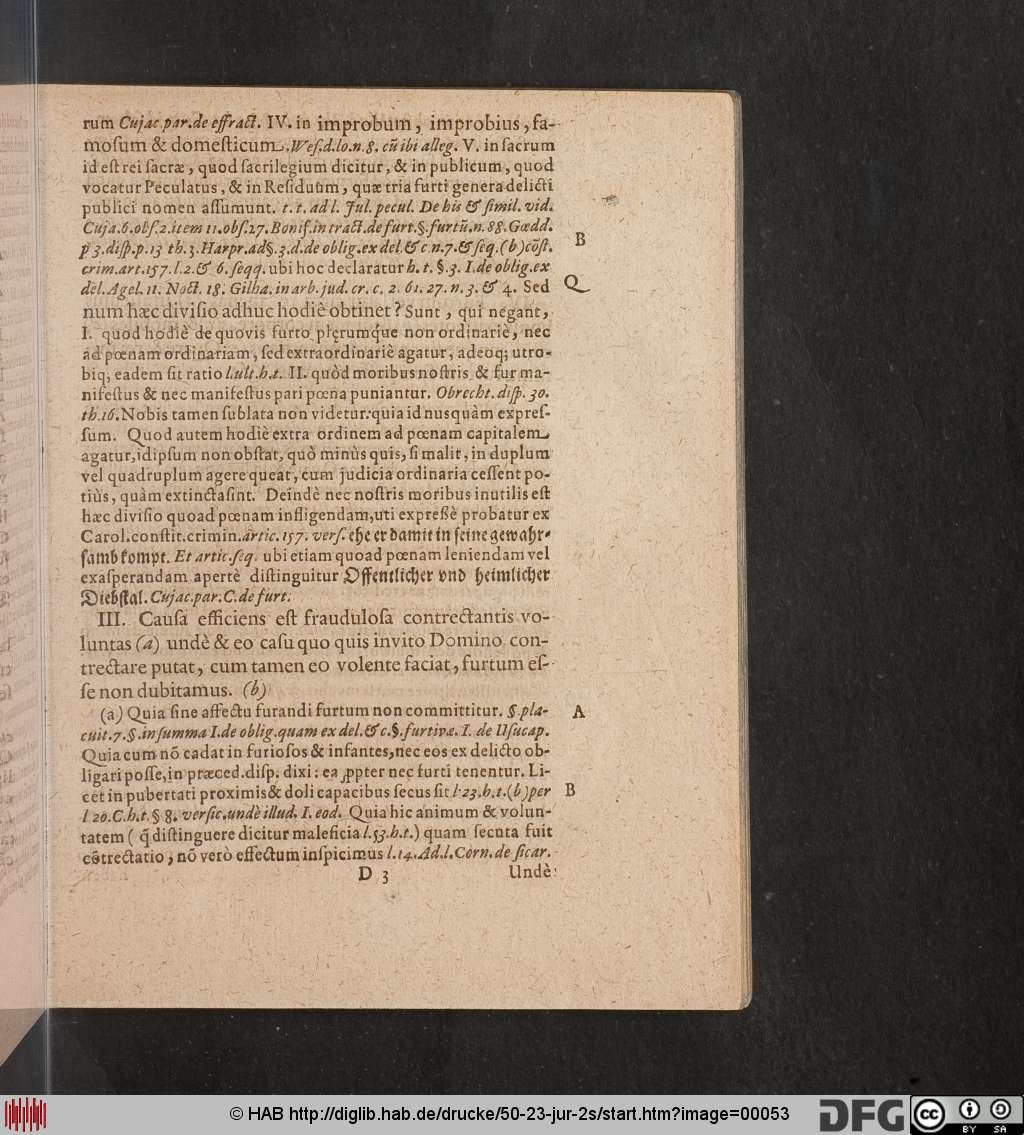 rum Cujac.par.de effract. IV. in improbum, improbius, fa-
mosum & domesticum. Wes.d.lo.n.8. cũ ibi alleg. V. in sacrum
id est rei sacræ, quod sacrilegium dicitur, & in publicum, quod
vocatur Peculatus, & in Residuum, quæ tria furti genera delicti
publici nomen assumunt. t. t. ad l. Jul. pecul. De his & simil. vid.
Cuja.6.obs.2.item 11.obs.27. Bonif.in tract.de furt.§.furtũ.n.88. Gœdd.
p 3.disp.p.13 th.3.Harpr.ad§.3.d.de oblig.ex del.& c n.7.& seq.(b)cõst.
B
crim.art.157.l.2.& 6.seqq.ubi hoc declaratur h. t. §.3. I.de oblig.ex
del. Agel. 11. Noct. 18. Gilha.in arb.jud. cr. c. 2. 61. 27. n. 3. & 4. Sed
Q
num hæc divisio adhuc hodiè obtinet? Sunt, qui negant,
I. quod hodiè de quovis furto plęrumq́ue non ordinariè, nec
ad pœnam ordinariam, sed extraordinariè agatur, adeoq; utro-
biq; eadem sit ratio l.ult.h.t. II. quòd moribus nostris & fur ma-
nifestus & nec manifestus pari pœna puniantur. Obrecht. disp. 30.
th.16. Nobis tamen sublata non videtur: quia id nusquàm expres-
sum. Quod autem hodiè extra ordinem ad pœnam capitalem
agatur, idipsum non obstat, quò minùs quis, si malit, in duplum
vel quadruplum agere queat, cum judicia ordinaria cessent po-
tiùs, quàm extincta sint. Deindè nec nostris moribus inutilis est
hæc divisio quoad pœnam infligendam, uti expreßè probatur ex
Carol.constit.crimin.artic.157. vers. ehe er damit in seine gewahr-
samb kompt. Et artic.seq. ubi etiam quoad pœnam leniendam vel
exasperandam apertè distinguitur Offentlicher vnd heimlicher
Diebstal. Cujac.par.C.de furt.
III. Causa efficiens est fraudulosa contrectantis vo-
luntas (a) undè & eo casu quo quis invito Domino con-
trectare putat, cum tamen eo volente faciat, furtum es-
se non dubitamus. (b)
(a) Quia sine affectu furandi furtum non committitur. §.pla-
A
cuit.7.§.in summa I.de oblig.quam ex del.& c.§.furtivæ. I. de Usucap.
Quia cum nõ cadat in furiosos & infantes, nec eos ex delicto ob-
ligari posse, in præced.disp. dixi: ea ꝓpter nec furti tenentur. Li-
cet in pubertati proximis & doli capacibus secus sit l 23.h.t.(b)per
B
l 20.C.h.t.§ 8. versic.undè illud. I. eod. Quia hic animum & volun-
tatem ( q̃ distinguere dicitur maleficia l.53.h.t.) quam secuta fuit
cõtrectatio, nõ verò effectum inspicimus l.14. Ad.l.Corn.de sicar.
D 3
Undè
© HAB http://diglib.hab.de/drucke/50-23-jur-2s/start.htm?image=00053
DFG
cc
BY SA